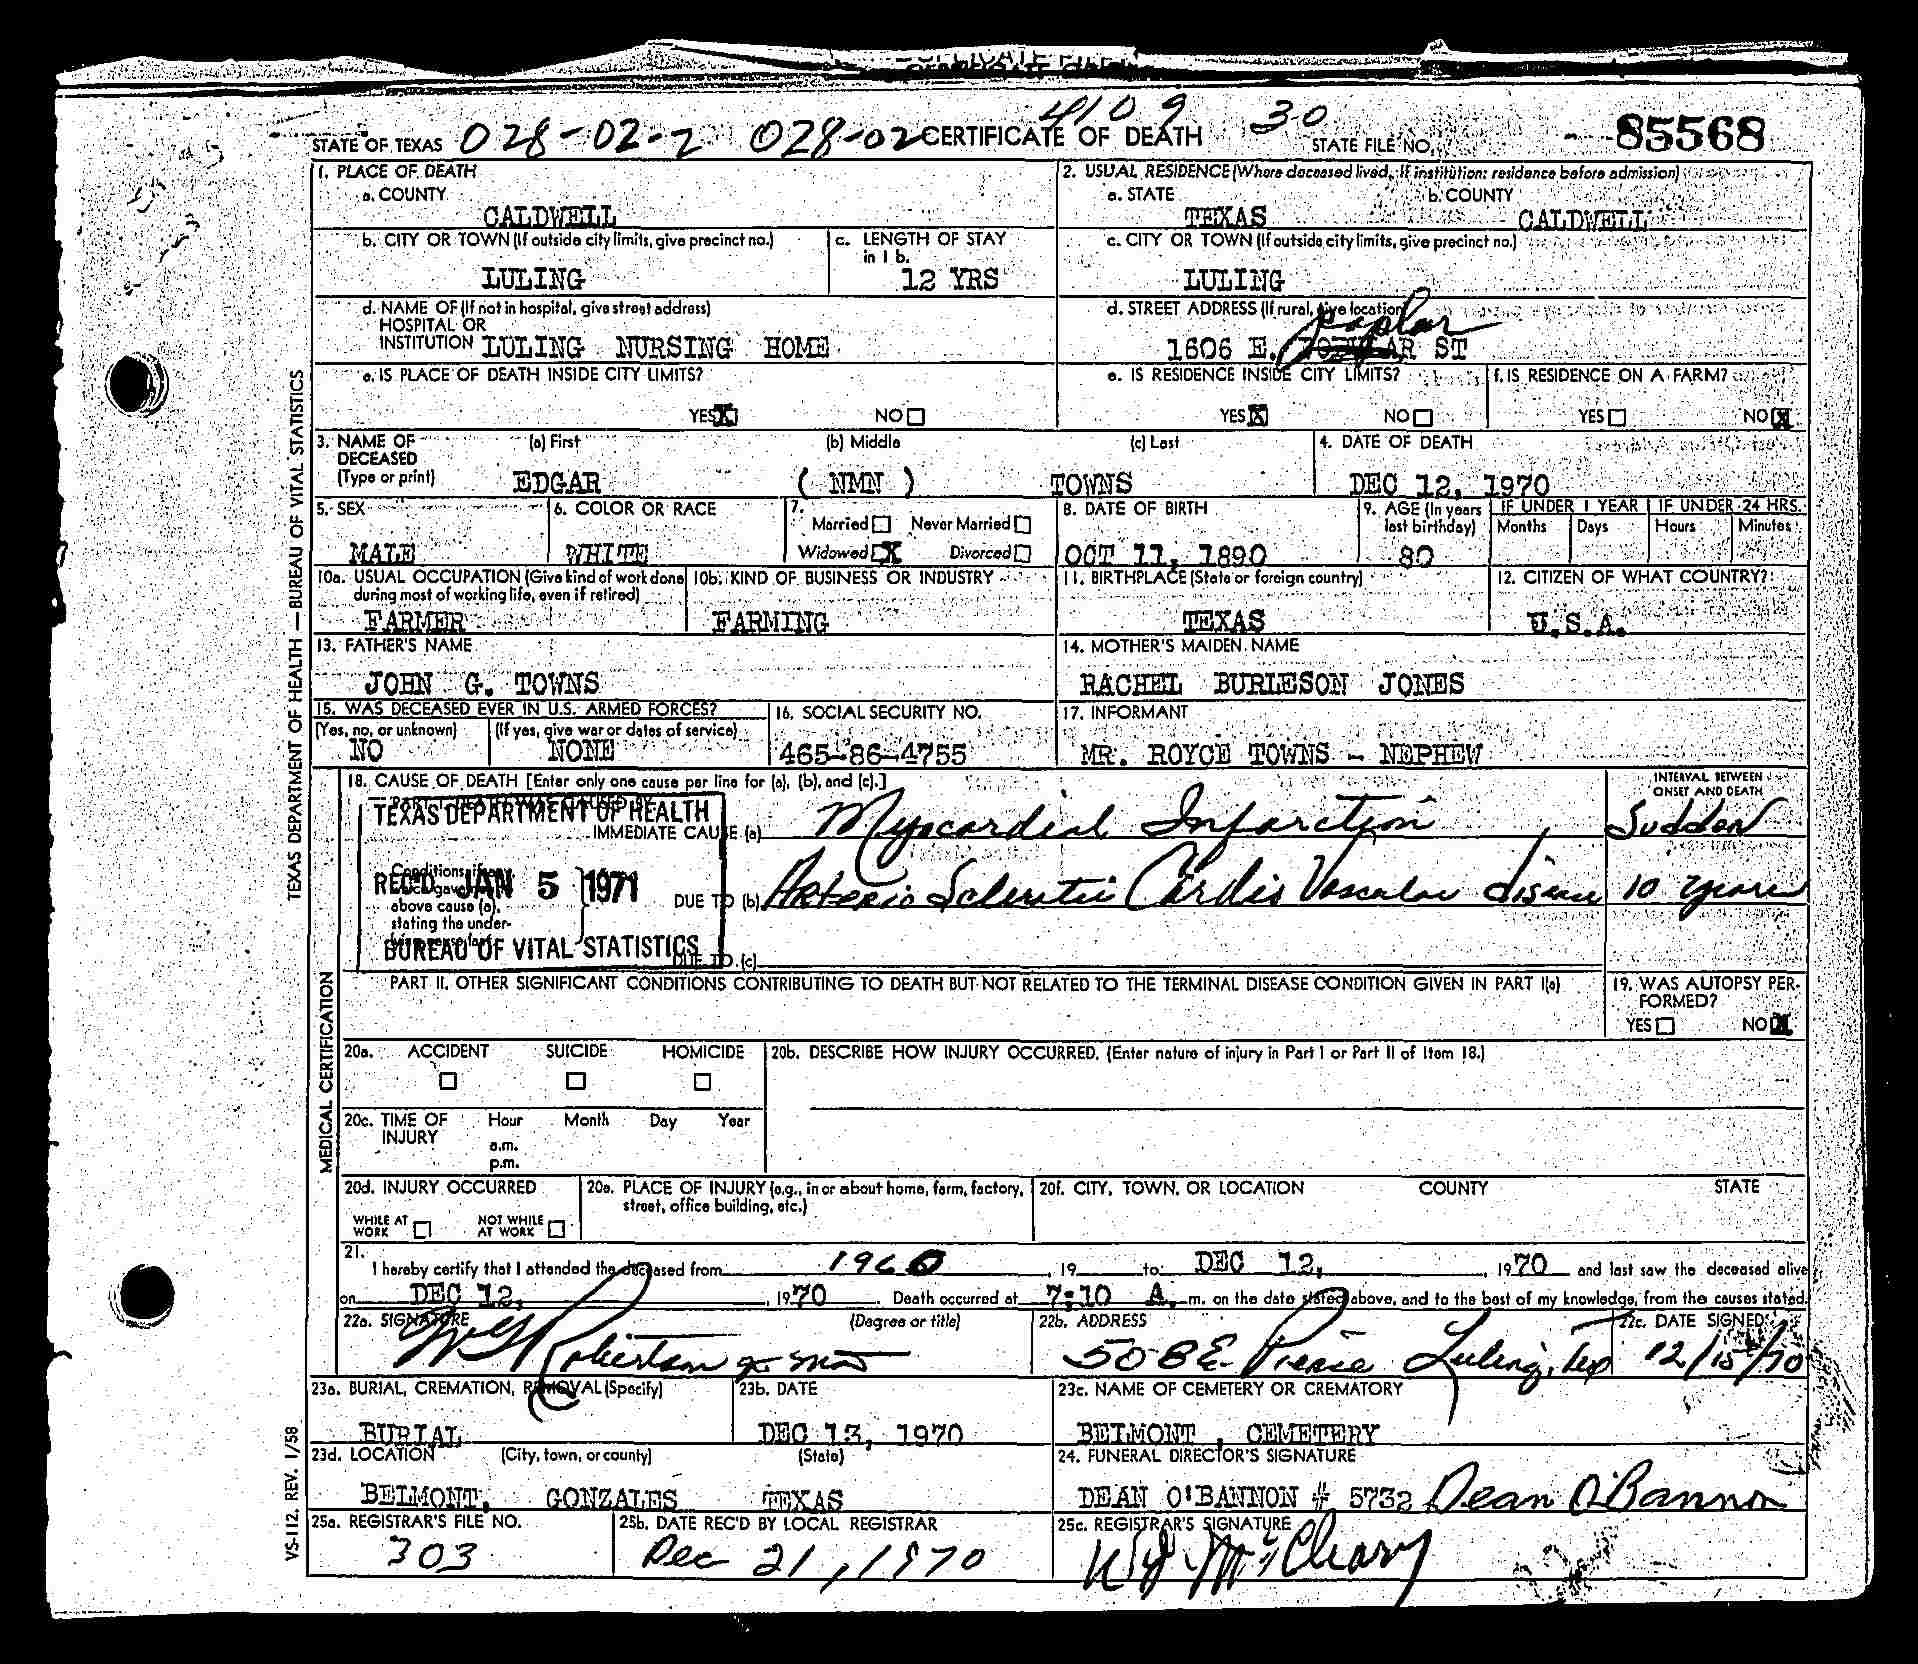 STATE OF TEXAS 028-02-2 028-02 CERTIFICATE OF DEATH 4109 30 STATE FILE NO. 85568
1. PLACE OF DEATH
a. COUNTY
CALDWELL
2. USUAL RESIDENCE (Where deceased lived, If institution: residence before admission)
a. STATE
TEXAS
b. COUNTY
CALDWELL
b. CITY OR TOWN (If outside city limits, give precinct no.)
LULING
c. LENGTH OF STAY in 1 b.
12 YRS
c. CITY OR TOWN (If outside city limits, give precinct no.)
LULING
d. NAME OF (If not in hospital, give street address)
HOSPITAL OR
INSTITUTION LULING NURSING HOME
d. STREET ADDRESS (If rural, give location)
1606 E. Poplar ST
e. IS PLACE OF DEATH INSIDE CITY LIMITS?
YES X NO
e. IS RESIDENCE INSIDE CITY LIMITS?
YES X NO
f. IS RESIDENCE ON A FARM?
YES NO X
3. NAME OF DECEASED (Type or print)
(a) First
EDGAR
(b) Middle
( NMN )
(c) Last
TOWNS
4. DATE OF DEATH
DEC 12, 1970
5. SEX
MALE
6. COLOR OR RACE
WHITE
7. Married Never Married
Widowed X Divorced
8. DATE OF BIRTH
OCT 11, 1890
9. AGE (In years last birthday)
80
IF UNDER 1 YEAR
Months Days
IF UNDER 24 HRS.
Hours Minutes
10a. USUAL OCCUPATION (Give kind of work done during most of working life, even if retired)
FARMER
10b. KIND OF BUSINESS OR INDUSTRY
FARMING
11. BIRTHPLACE (State or foreign country)
TEXAS
12. CITIZEN OF WHAT COUNTRY?
U.S.A.
13. FATHER'S NAME
JOHN G. TOWNS
14. MOTHER'S MAIDEN NAME
RACHEL BURLESON JONES
15. WAS DECEASED EVER IN U.S. ARMED FORCES?
(Yes, no, or unknown)
NO
(If yes, give war or dates of service)
NONE
16. SOCIAL SECURITY NO.
465-86-4755
17. INFORMANT
MR. ROYCE TOWNS - NEPHEW
18. CAUSE OF DEATH [Enter only one cause per line for (a), (b), and (c).]
INTERVAL BETWEEN ONSET AND DEATH
TEXAS DEPARTMENT OF HEALTH
IMMEDIATE CAUSE (a) Myocardial Infarction Sudden
REC'D JAN 5 1971
above cause (a),
stating the under-
DUE TO (b) Arterio Sclerotic Cardio Vascular disease 10 years
BUREAU OF VITAL STATISTICS
DUE TO (c)
PART II. OTHER SIGNIFICANT CONDITIONS CONTRIBUTING TO DEATH BUT NOT RELATED TO THE TERMINAL DISEASE CONDITION GIVEN IN PART I(a)
19. WAS AUTOPSY PERFORMED?
YES NO X
20a. ACCIDENT SUICIDE HOMICIDE
20b. DESCRIBE HOW INJURY OCCURRED. (Enter nature of injury in Part I or Part II of Item 18.)
20c. TIME OF INJURY
Hour Month Day Year
a.m.
p.m.
20d. INJURY OCCURRED
WHILE AT WORK NOT WHILE AT WORK
20e. PLACE OF INJURY (e.g., in or about home, farm, factory, street, office building, etc.)
20f. CITY, TOWN, OR LOCATION COUNTY STATE
21. I hereby certify that I attended the deceased from 1960, 19 to DEC 12, 1970 and last saw the deceased alive
on DEC 12, 1970. Death occurred at 7:10 A. m. on the date stated above, and to the best of my knowledge, from the causes stated.
22a. SIGNATURE (Degree or title)
Robertson Jr MD
22b. ADDRESS
508 E. Pierce Luling, Tex
22c. DATE SIGNED
12/15/70
23a. BURIAL, CREMATION, REMOVAL (Specify)
BURIAL
23b. DATE
DEC 13, 1970
23c. NAME OF CEMETERY OR CREMATORY
BELMONT, CEMETERY
23d. LOCATION (City, town, or county) (State)
BELMONT, GONZALES TEXAS
24. FUNERAL DIRECTOR'S SIGNATURE
DEAN O'BANNON # 5732 Dean O'Bannon
25a. REGISTRAR'S FILE NO.
303
25b. DATE REC'D BY LOCAL REGISTRAR
Dec 21, 1970
25c. REGISTRAR'S SIGNATURE
McCleary
TEXAS DEPARTMENT OF HEALTH — BUREAU OF VITAL STATISTICS
MEDICAL CERTIFICATION
VS-112. REV. 1/58